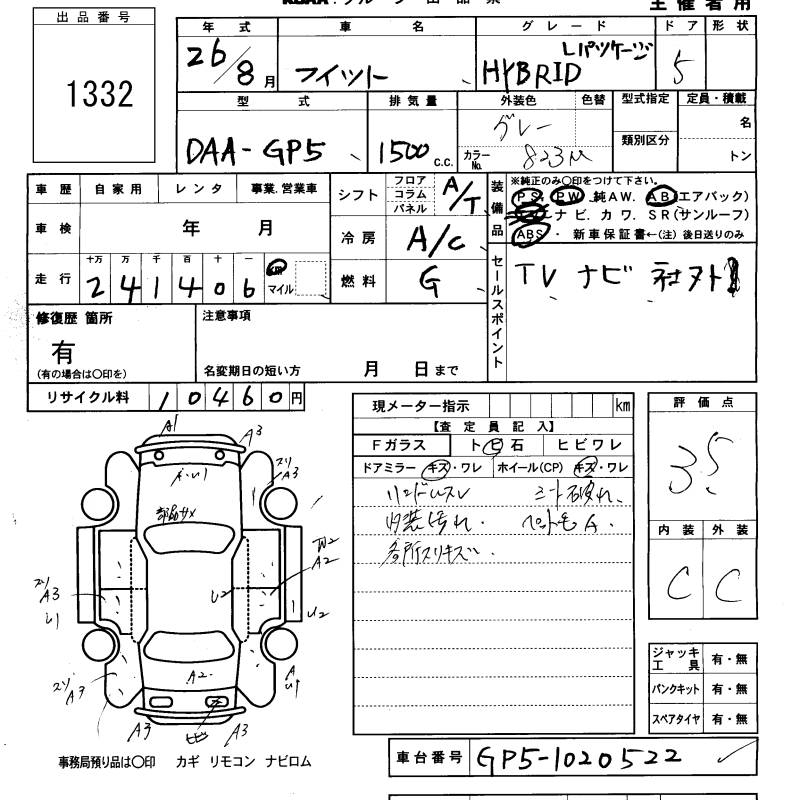 主催者用
出品番号
1332
年式 車名 グレード ドア 形状
26/8月 フイット HYBRID Lパッケージ 5
型式 排気量 外装色 色替 型式指定 定員・積載
DAA-GP5 1500 C.C. グレー カラーNo. 823M 類別区分 名 トン
車歴 自家用 レンタ 事業.営業車
車検 年 月
走行 十万 万 千 百 十 一
2 4 1 4 0 6 km マイル
シフト フロア コラム パネル A/T
冷房 A/C
燃料 G
装備品 ※純正のみ〇印をつけて下さい。
PS. PW .純AW. AB(エアバック)
ナビ. カワ. SR(サンルーフ)
ABS ・ 新車保証書←(注) 後日送りのみ
セールスポイント
TV ナビ 社外
修復歴 箇所
有
(有の場合は〇印を)
注意事項
名変期日の短い方 月 日まで
リサイクル料 10460円
現メーター指示 km
【査定員記入】
Fガラス トビ石 ヒビワレ
ドアミラー キズ・ワレ ホイール(CP) キズ・ワレ
シート破れ、
内装汚れ.
各所スリキズ
評価点
3.5
内装 外装
C C
ジャッキ工具 有・無
パンクキット 有・無
スペアタイヤ 有・無
A1
A3
スリ A3
W2
A2
スリ A3
U1
U2
U2
スリ A3
A2
A U1
A3
A3
事務局預り品は〇印 カギ リモコン ナビロム
車台番号 GP5-1020522